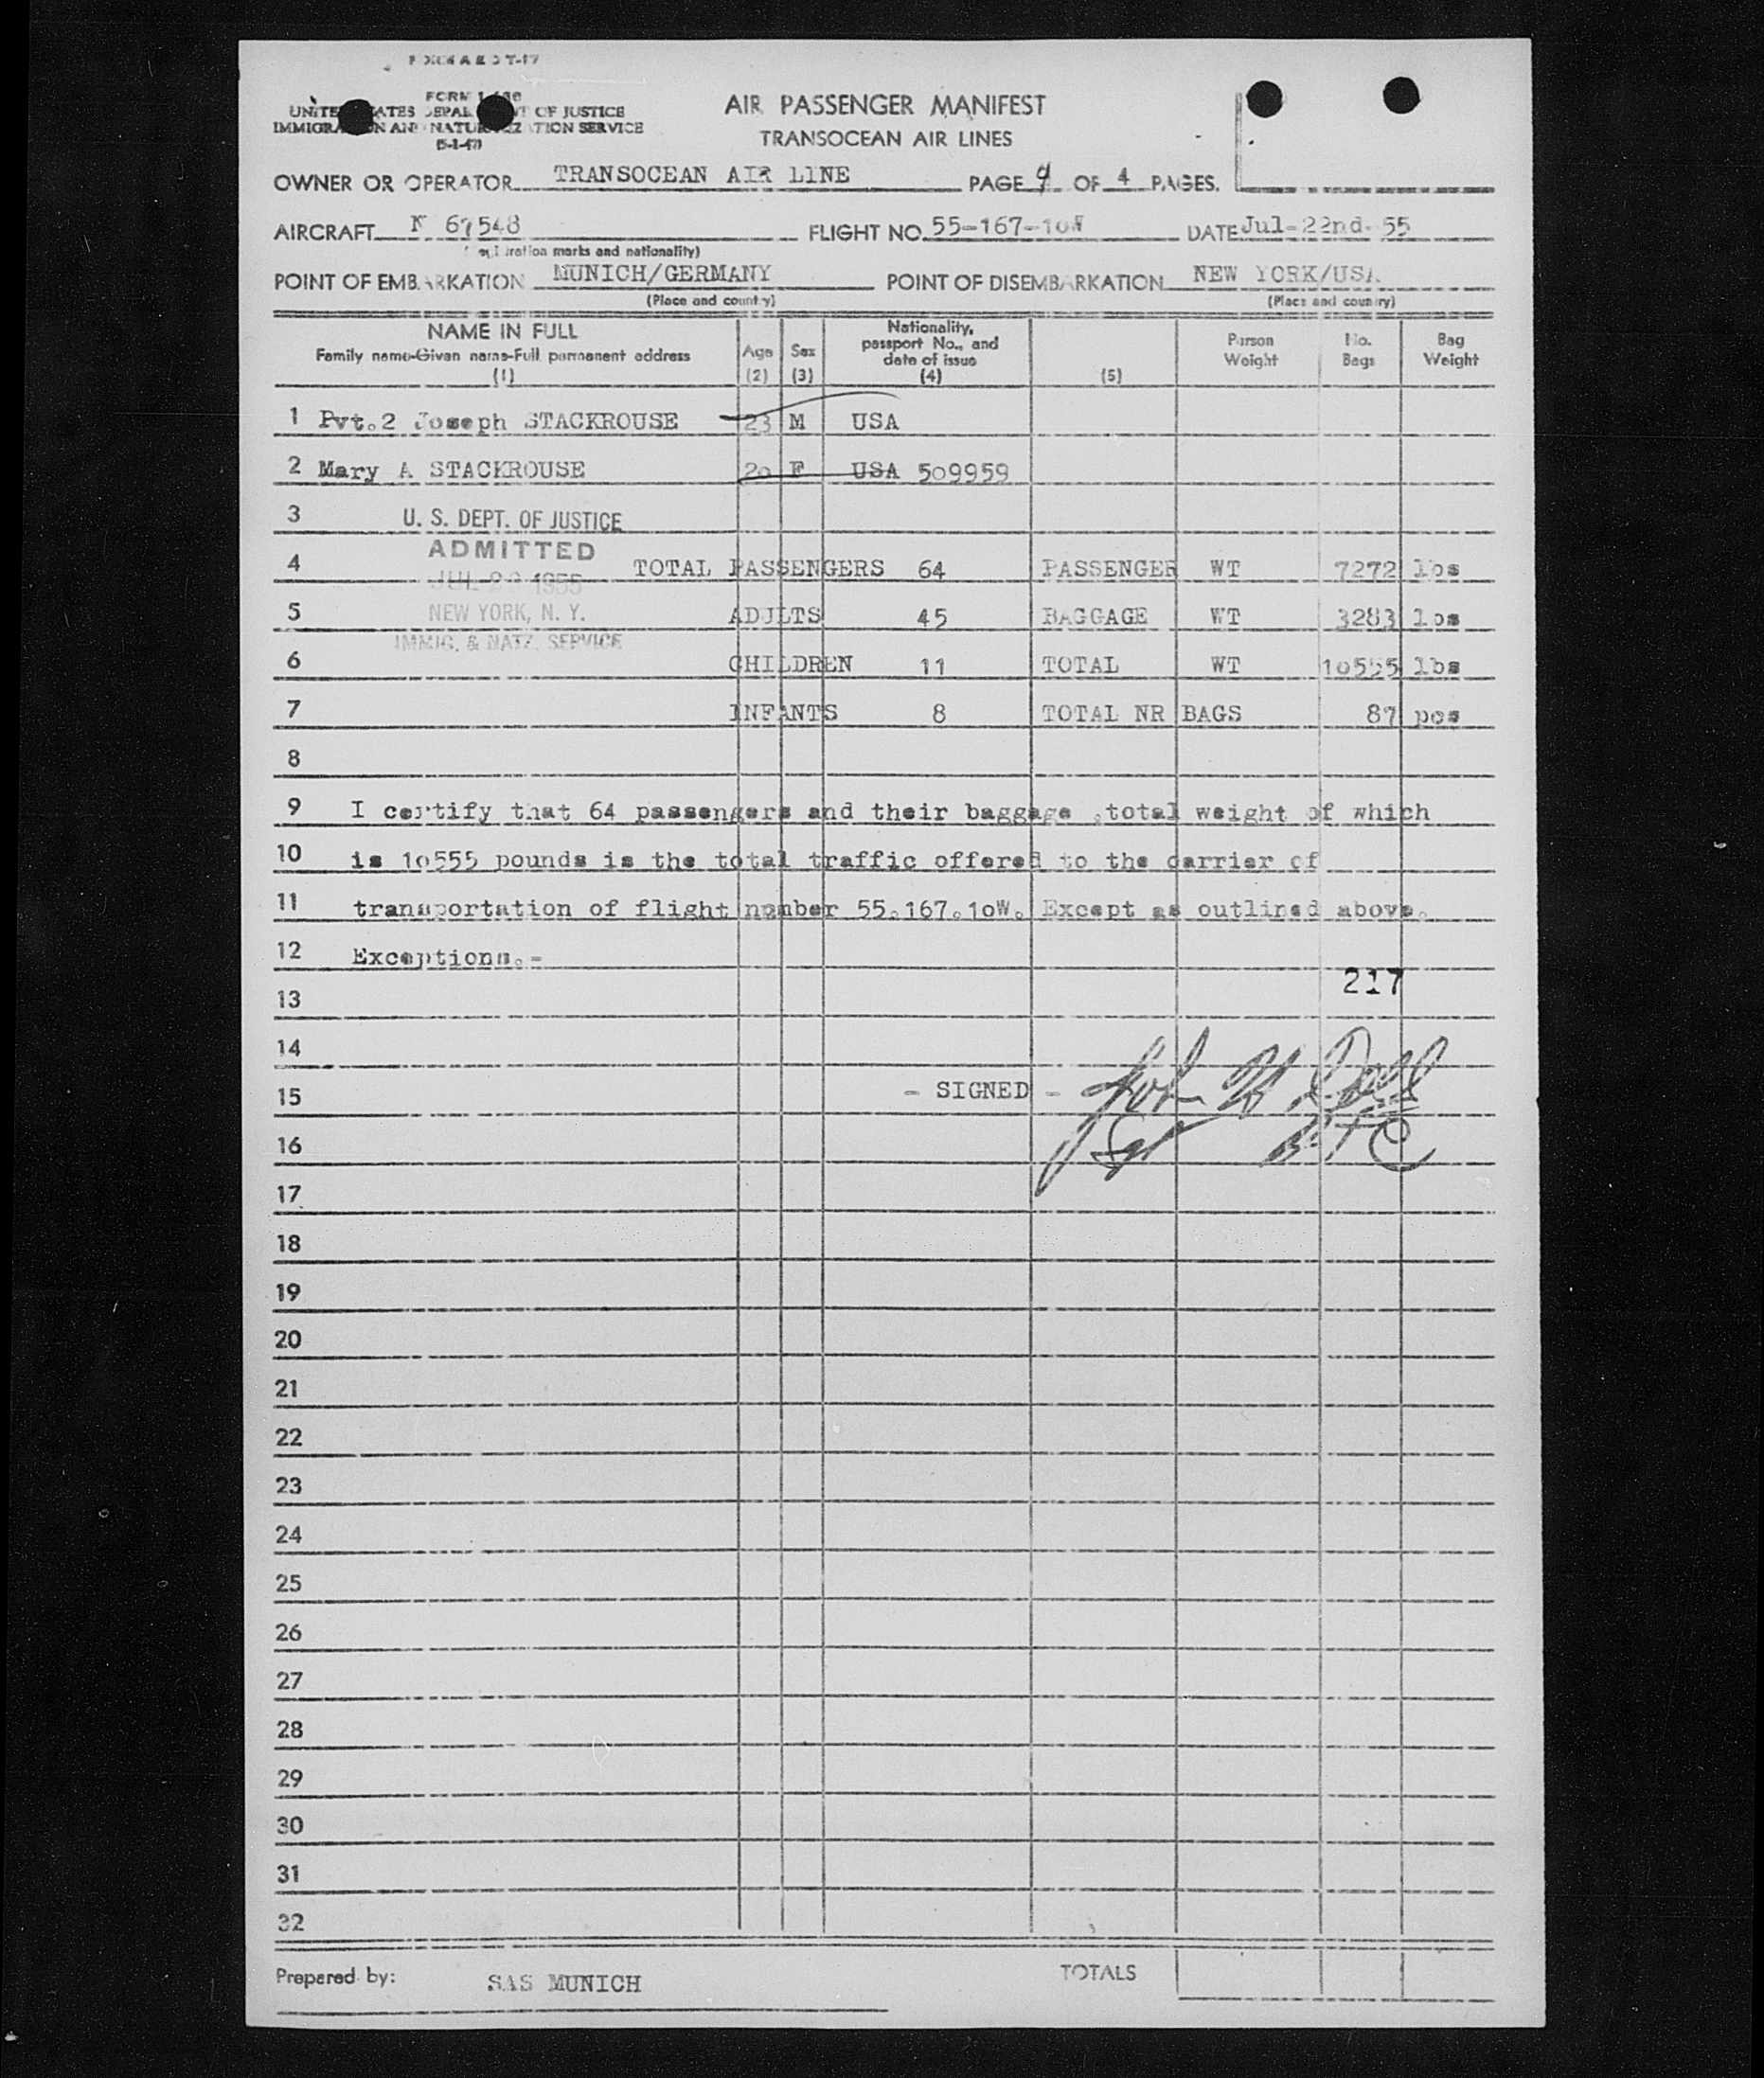 AIR PASSENGER MANIFEST
UNITED STATES DEPARTMENT OF JUSTICE
IMMIGRATION AND NATURALIZATION SERVICE
(5-1-47)
TRANSOCEAN AIR LINES
OWNER OR OPERATOR TRANSOCEAN AIR LINE PAGE 4 OF 4 PAGES.
AIRCRAFT N 67548 FLIGHT NO. 55-167-10W DATE Jul-22nd-55
(Registration marks and nationality)
POINT OF EMBARKATION MUNICH/GERMANY POINT OF DISEMBARKATION NEW YORK/USA
(Place and country) (Place and country)
NAME IN FULL
Family name-Given name-Full permanent address
(1)
Age
(2)
Sex
(3)
Nationality,
passport No., and
date of issue
(4)
(5)
Person
Weight
No.
Bags
Bag
Weight
1 Pvt.2 Joseph STACKROUSE 23 M USA
2 Mary A STACKROUSE 20 F USA 509959
3 U. S. DEPT. OF JUSTICE
ADMITTED
4 TOTAL PASSENGERS 64 PASSENGER WT 7272 lbs
JUL 1955
5 NEW YORK, N. Y. ADULTS 45 BAGGAGE WT 3283 lbs
IMMIG. & NATZ. SERVICE
6 CHILDREN 11 TOTAL WT 10555 lbs
7 INFANTS 8 TOTAL NR BAGS 87 pcs
8
9 I certify that 64 passengers and their baggage ,total weight of which
10 is 10555 pounds is the total traffic offered to the carrier of
11 transportation of flight number 55.167.10W. Except as outlined above.
12 Exceptions.-
217
13
14
15 - SIGNED - John H
16 Sgt
17
18
19
20
21
22
23
24
25
26
27
28
29
30
31
32
Prepared by: SAS MUNICH TOTALS